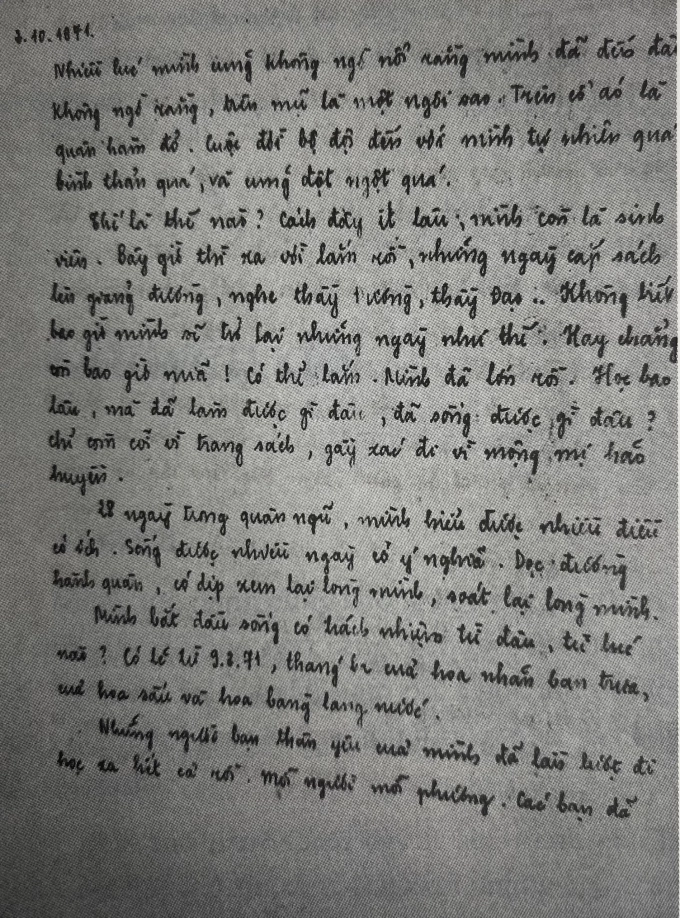 2.10.1971.
Nhiều lúc mình cũng không ngờ nổi rằng mình đã đến đây
Không ngờ rằng, trên mũ là một ngôi sao. Trên cổ áo là
quân hàm đỏ. Cuộc đời bộ đội đến với mình tự nhiên quá
bình thản quá, và cũng đột ngột quá.
Thế là thế nào? Cách đây ít lâu, mình còn là sinh
viên. Bây giờ thì xa vời lắm rồi, những ngày cắp sách
lên giảng đường, nghe thầy Đạo.. Không biết
bao giờ mình sẽ trở lại những ngày như thế. Hay chẳng
còn bao giờ nữa! Có thể lắm. Mình đã lớn rồi. Học bao
lâu, mà đã làm được gì đâu, đã sống được gì đâu?
Chỉ còn cõi vì trang sách, gầy xác đi vì mộng mị hão
huyền.
28 ngày trong quân ngũ, mình hiểu được nhiều điều
có ích. Sống được nhiều ngày có ý nghĩa. Dọc đường
hành quân, có dịp xem lại lòng mình, soát lại lòng mình.
Mình bắt đầu sống có trách nhiệm từ đâu, từ lúc
nào? Có lẽ từ 9.3.71, tháng ba của hoa nhãn ban trưa,
của hoa sấu và hoa bằng lăng nước.
Những người bạn thân yêu của mình đã lần lượt đi
học xa hết cả rồi. Mỗi người mỗi phương. Các bạn đã